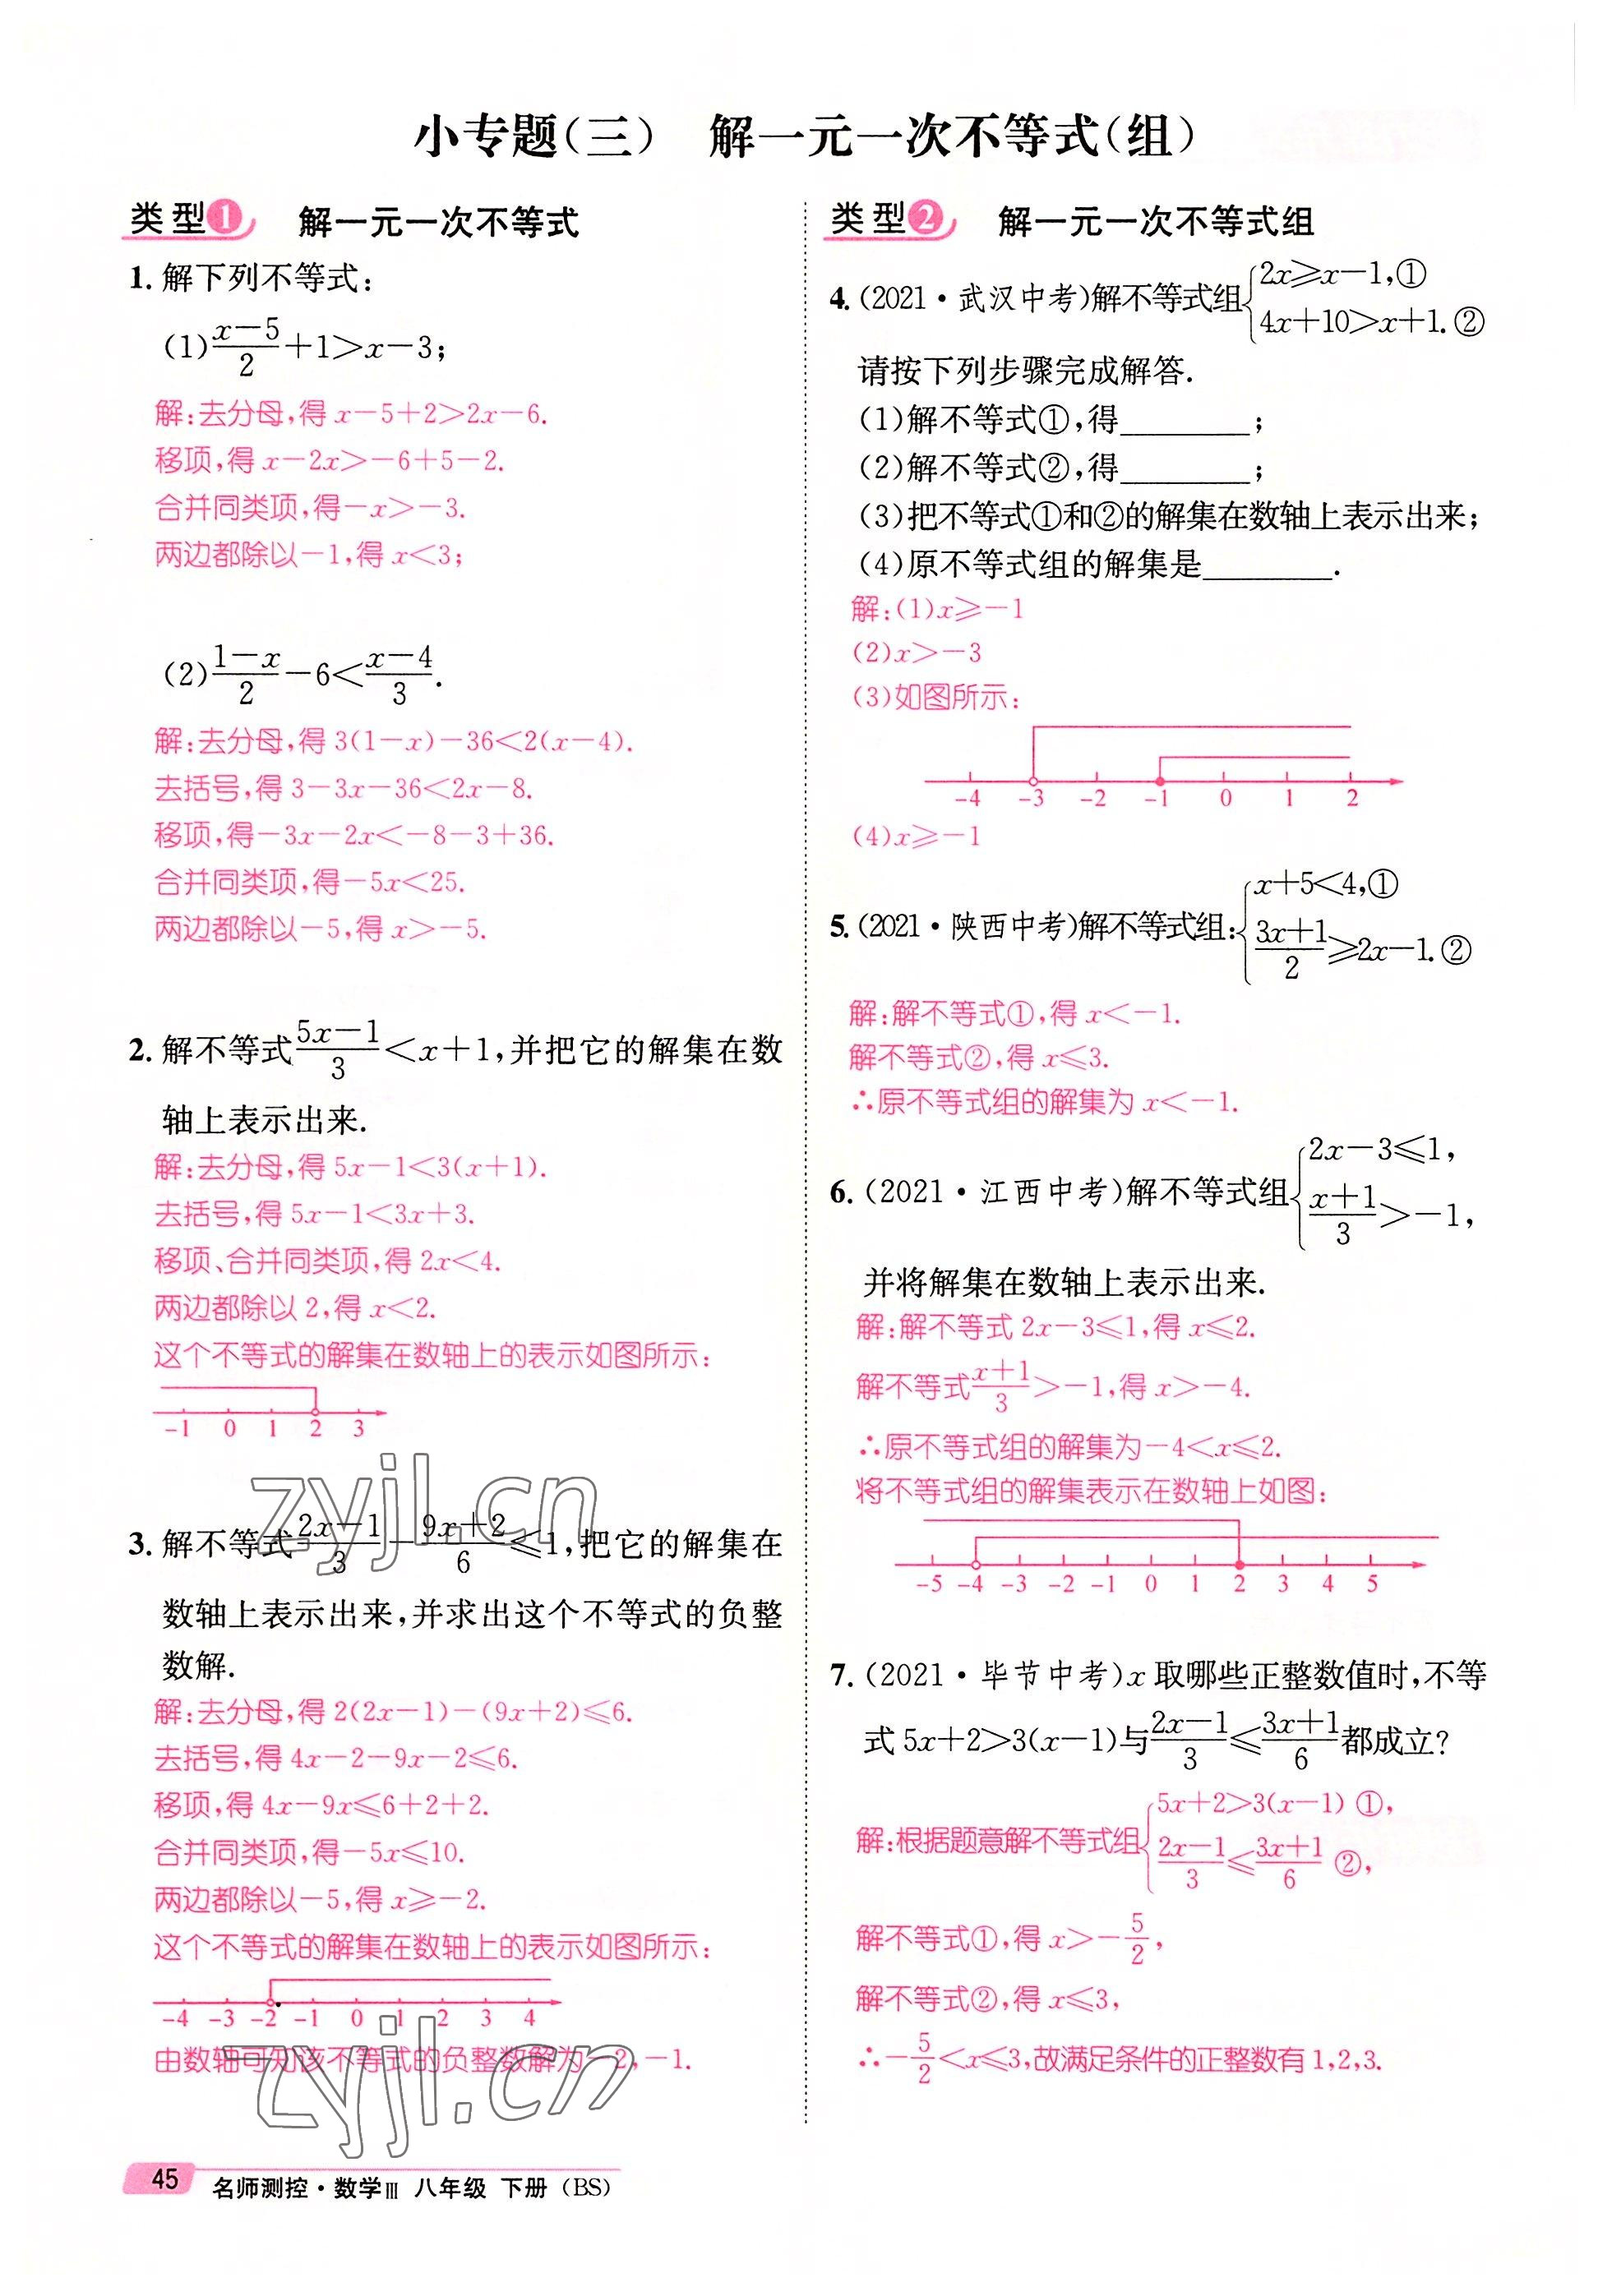 小专题(三) 解一元一次不等式(组)
类型1 解一元一次不等式
1. 解下列不等式:
(1)\frac{x-5}{2}+1>x-3;
解:去分母,得 x-5+2>2x-6.
移项,得 x-2x>-6+5-2.
合并同类项,得-x>-3.
两边都除以-1,得 x<3;
(2)\frac{1-x}{2}-6<\frac{x-4}{3}.
解:去分母,得 3(1-x)-36<2(x-4).
去括号,得 3-3x-36<2x-8.
移项,得-3x-2x<-8-3+36.
合并同类项,得-5x<25.
两边都除以-5,得 x>-5.
2. 解不等式\frac{5x-1}{3}<x+1,并把它的解集在数
轴上表示出来.
解:去分母,得 5x-1<3(x+1).
去括号,得 5x-1<3x+3.
移项、合并同类项,得 2x<4.
两边都除以 2,得 x<2.
这个不等式的解集在数轴上的表示如图所示:
-1 0 1 2 3
zyjl.cn
3. 解不等式\frac{2x-1}{3}-\frac{9x+2}{6}≤1,把它的解集在
数轴上表示出来,并求出这个不等式的负整
数解.
解:去分母,得 2(2x-1)-(9x+2)≤6.
去括号,得 4x-2-9x-2≤6.
移项,得 4x-9x≤6+2+2.
合并同类项,得-5x≤10.
两边都除以-5,得 x≥-2.
这个不等式的解集在数轴上的表示如图所示:
-4 -3 -2 -1 0 1 2 3 4
由数轴可知该不等式的负整数解为-2,-1.
zyjl.cn
类型2 解一元一次不等式组
4. (2021·武汉中考)解不等式组{2x≥x-1,①
4x+10>x+1.②
请按下列步骤完成解答.
(1)解不等式①,得________;
(2)解不等式②,得________;
(3)把不等式①和②的解集在数轴上表示出来;
(4)原不等式组的解集是________.
解:(1)x≥-1
(2)x>-3
(3)如图所示:
-4 -3 -2 -1 0 1 2
(4)x≥-1
5. (2021·陕西中考)解不等式组:{x+5<4,①
\frac{3x+1}{2}≥2x-1.②
解:解不等式①,得 x<-1.
解不等式②,得 x≤3.
∴原不等式组的解集为 x<-1.
6. (2021·江西中考)解不等式组{2x-3≤1,
\frac{x+1}{3}>-1,
并将解集在数轴上表示出来.
解:解不等式 2x-3≤1,得 x≤2.
解不等式\frac{x+1}{3}>-1,得 x>-4.
∴原不等式组的解集为-4<x≤2.
将不等式组的解集表示在数轴上如图:
-5 -4 -3 -2 -1 0 1 2 3 4 5
7. (2021·毕节中考)x 取哪些正整数值时,不等
式 5x+2>3(x-1)与\frac{2x-1}{3}≤\frac{3x+1}{6}都成立?
解:根据题意解不等式组{5x+2>3(x-1) ①,
\frac{2x-1}{3}≤\frac{3x+1}{6} ②,
解不等式①,得 x>-\frac{5}{2},
解不等式②,得 x≤3,
∴-\frac{5}{2}<x≤3,故满足条件的正整数有 1,2,3.
45 名师测控·数学Ⅲ 八年级 下册 (BS)